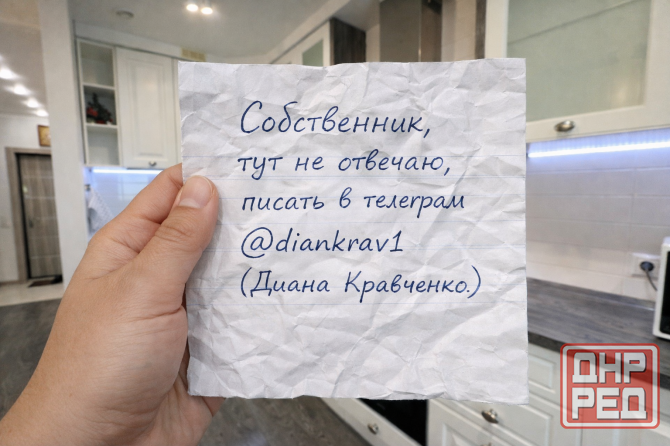 Собственник,
тут не отвечаю,
писать в телеграм
@diankrav1
(Диана Кравченко.)
ДНР
РЕД